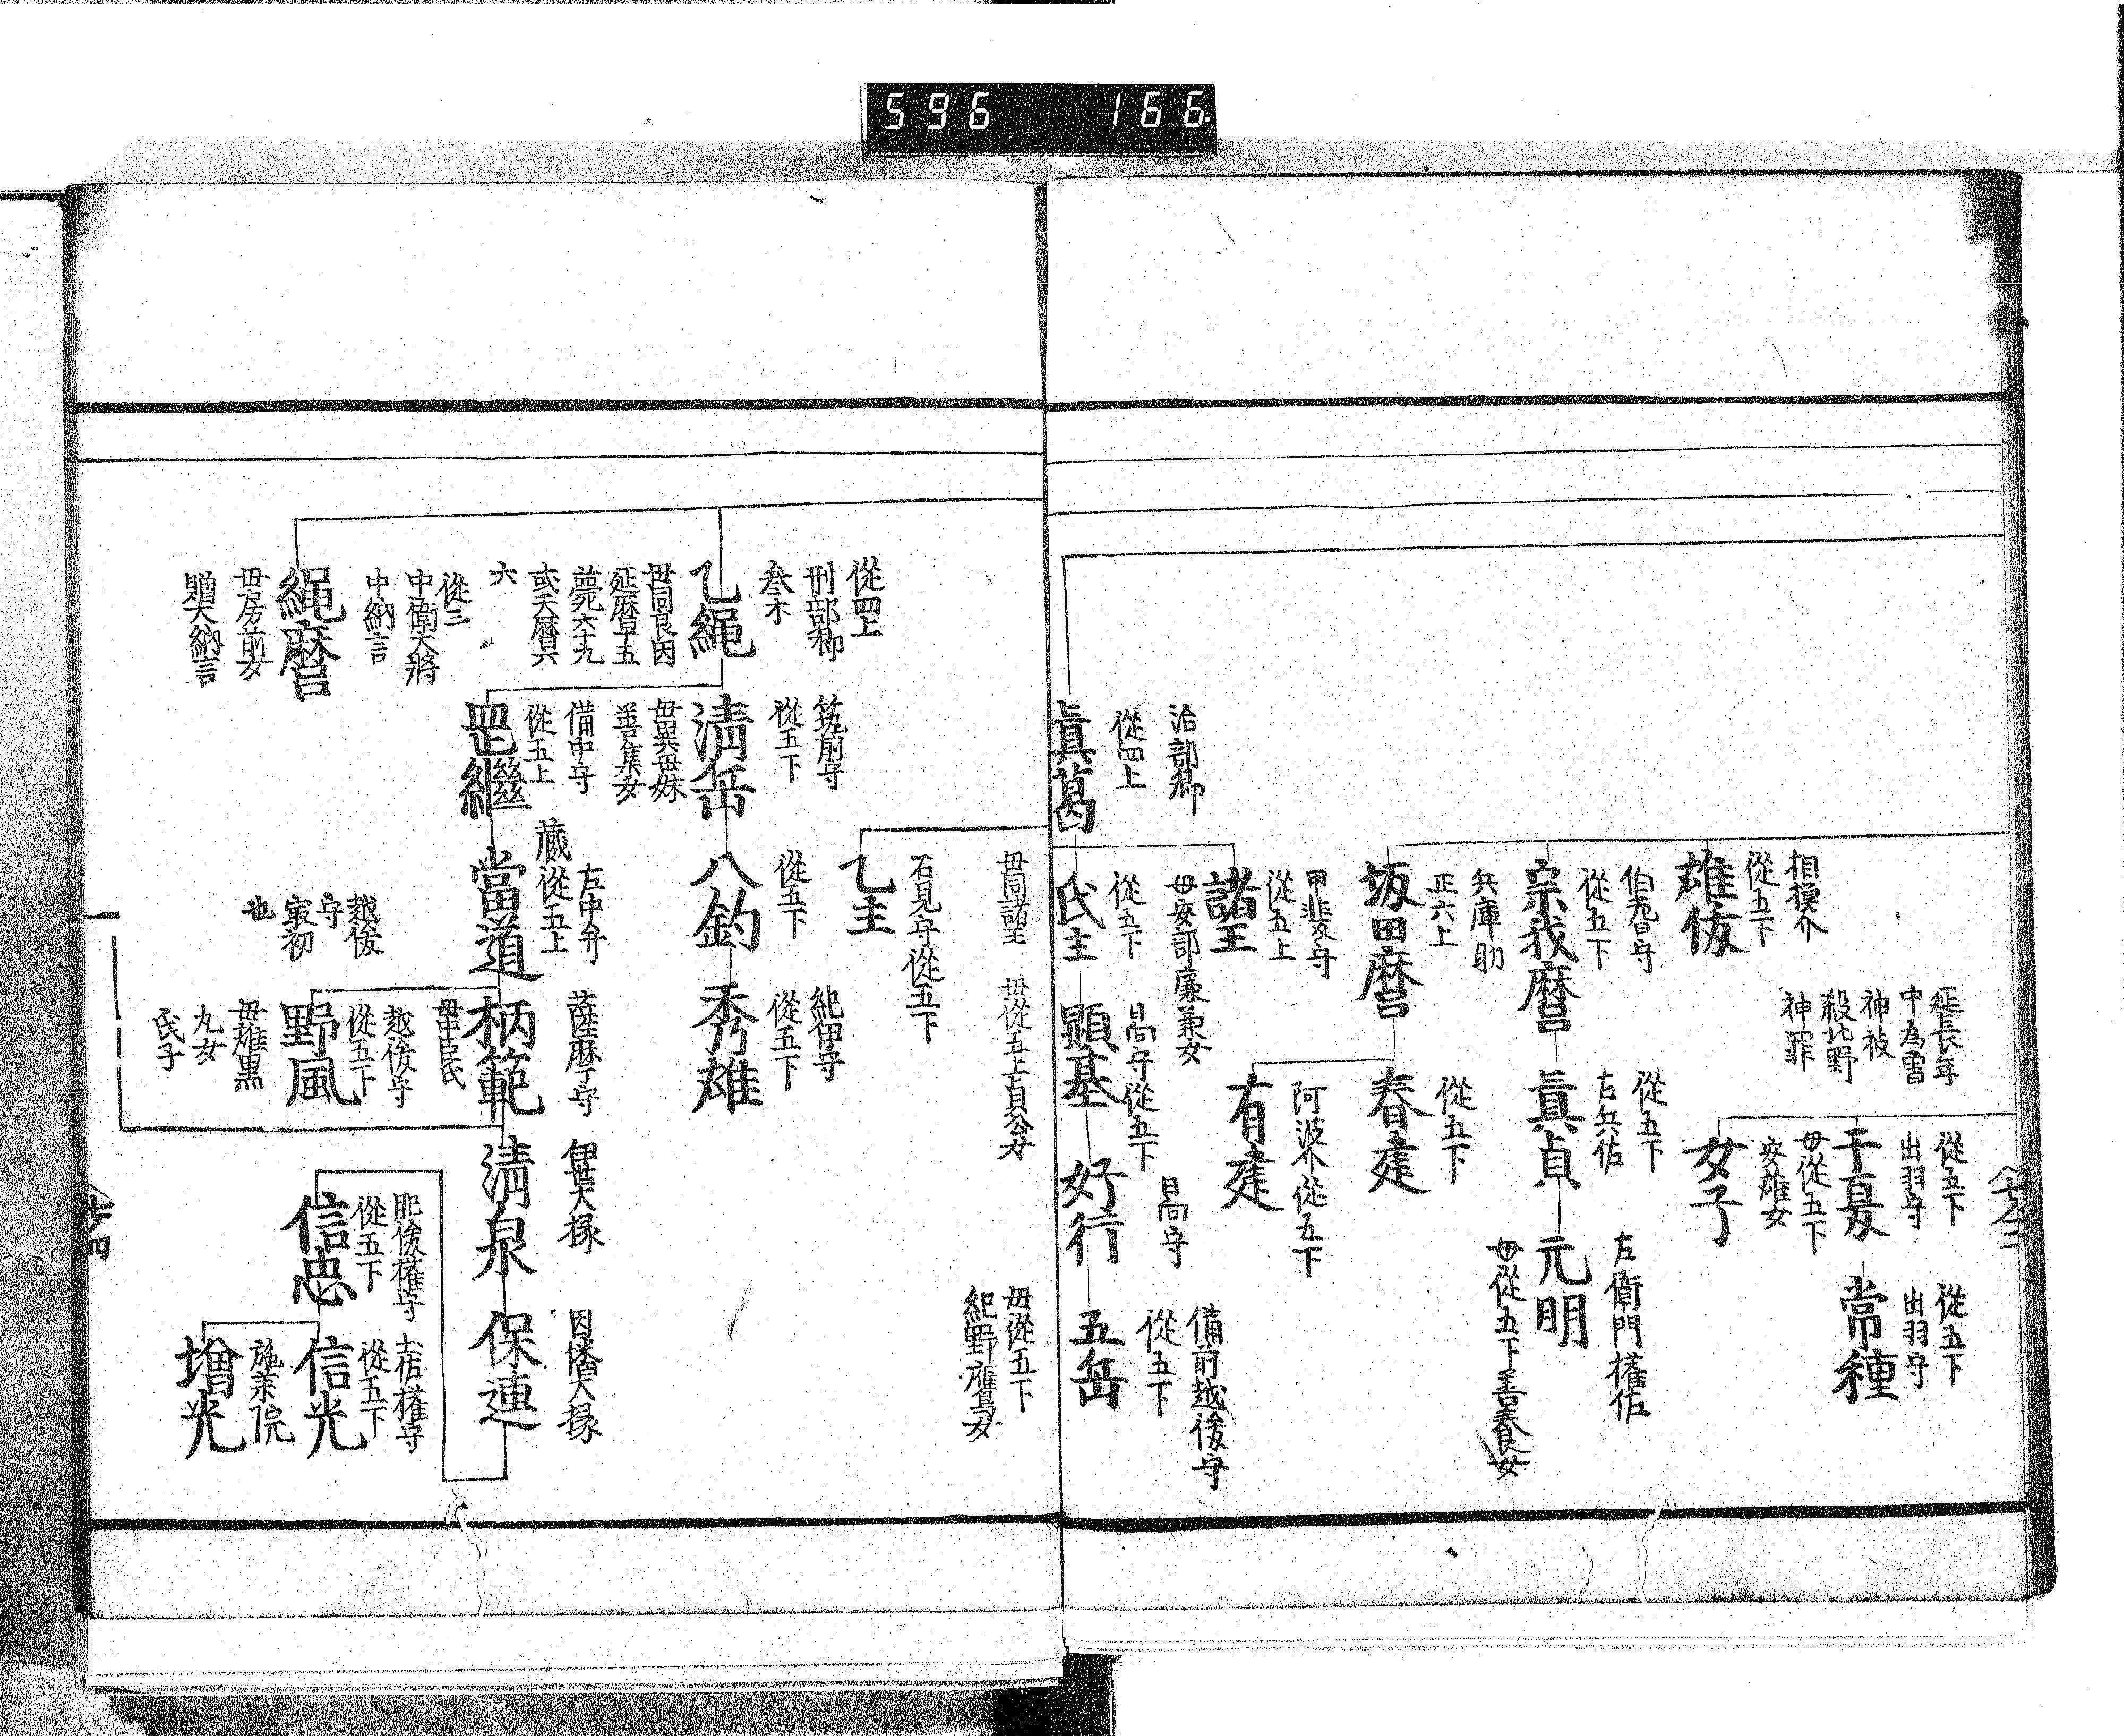 596 166
相摸介
從五下
雄依
伯耆守
從五下
宗我麿
兵庫助
正六上
坂田麿
甲斐守
從五上
諸王
母安部廉兼女
從五下
氏主
治部卿
從四上
眞葛
延長年
中為雷
神被
殺北野
神罪
從五下
出羽守
千夏
母從五下
安雄女
女子
從五下
出羽守
常種
從五下
右兵佐
眞貞
左衛門権佐
元明
母從五下善春女
從五下
春建
阿波介從五下
有建
昌守
從五下
顯基
昌守
好行
備前越後守
從五下
五岳
母同諸王
母從五上貞公女
母從五下
紀野鷹女
石見守從五下
乙主
從四上
刑部卿
叄木
乙繩
母同良因
延曆五
薨六十九
或天曆具
六
從三
中衛大將
中納言
繩麿
母房前女
贈大納言
筑前守
從五下
清岳
母異母妹
善集女
備中守
從五上
罡繼
從五下
八釣
紀伊守
從五下
秀雄
左中弁
藏從五上
當道
薩摩守
柄範
母中臣氏
越後守
從五下
野風
母雄黒
九女
氏子
越後
守
寂初
也
伊世大掾
清泉
因播大掾
保連
肥後権守
從五下
信忠
土佐権守
從五下
信光
施薬院
增光